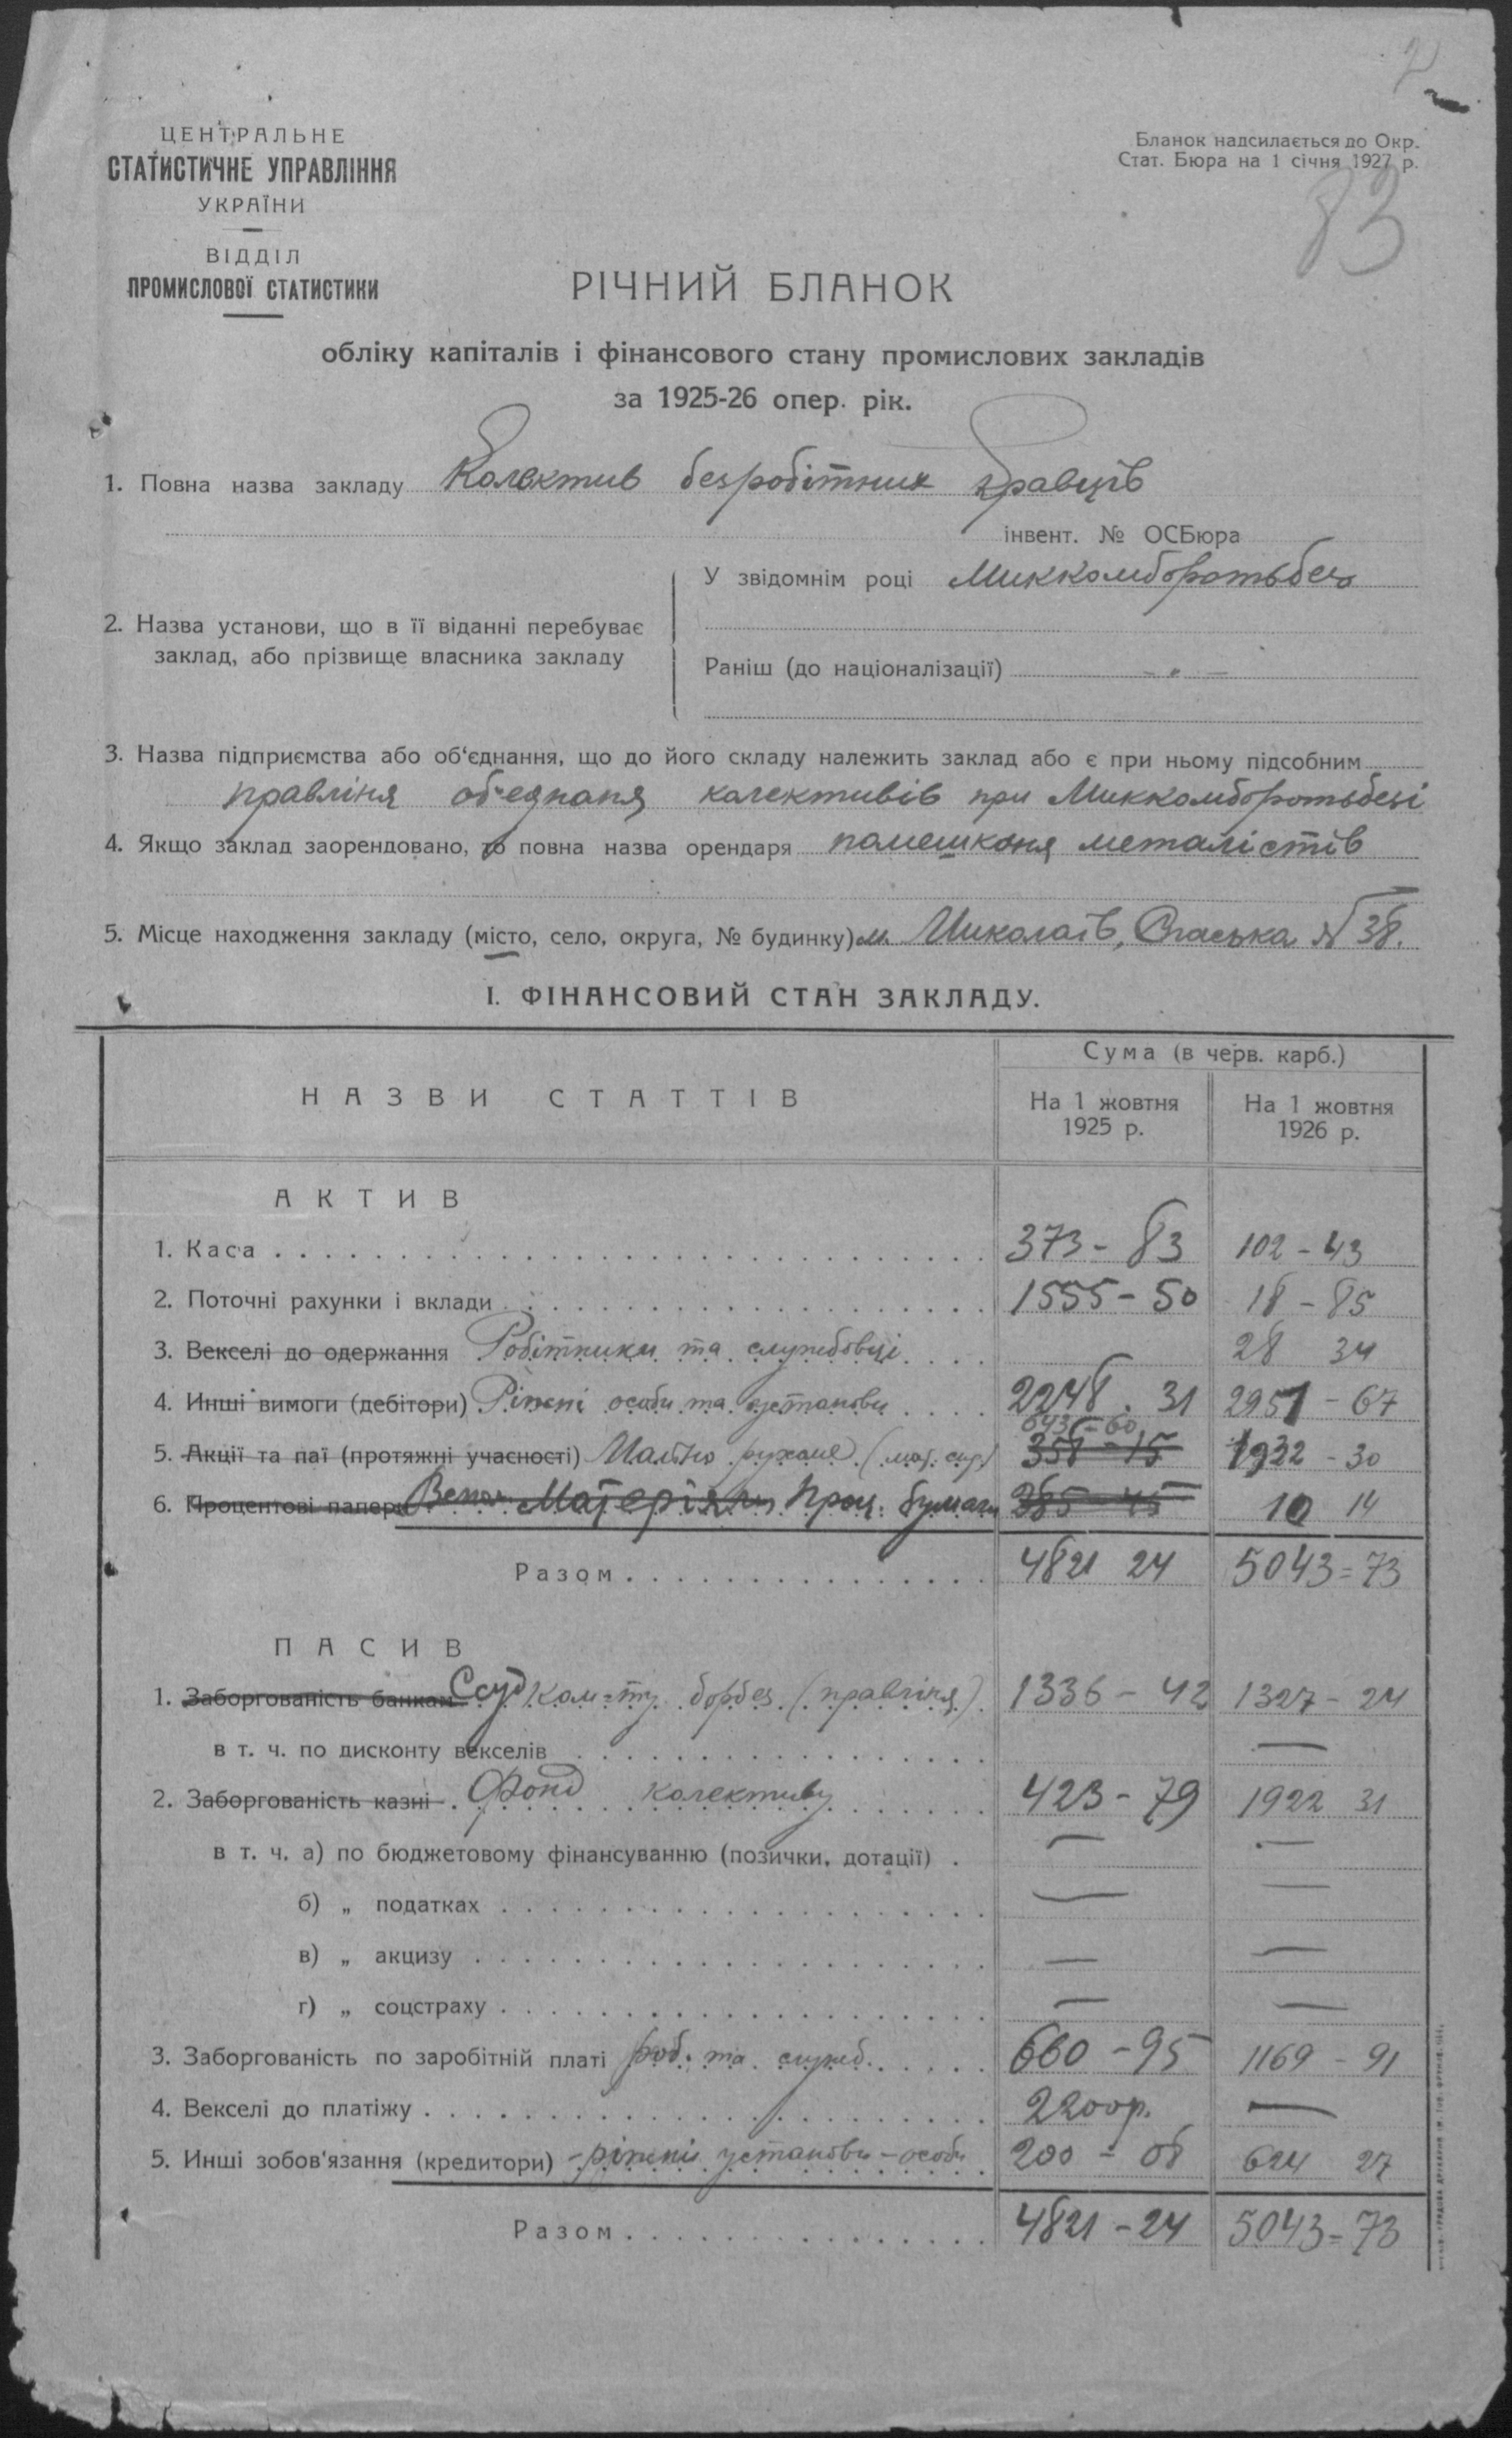 2
ЦЕНТРАЛЬНЕ
СТАТИСТИЧНЕ УПРАВЛІННЯ
УКРАЇНИ
ВІДДІЛ
ПРОМИСЛОВОЇ СТАТИСТИКИ
Бланок надсилається до Окр.
Стат. Бюра на 1 січня 1927 р.
83
РІЧНИЙ БЛАНОК
обліку капіталів і фінансового стану промислових закладів
за 1925-26 опер. рік.
1. Повна назва закладу Колектив безробітних кравців
інвент. № ОСБюра
У звідомнім році Миккомборотьбез
2. Назва установи, що в її віданні перебуває
заклад, або прізвище власника закладу
Раніш (до націоналізації) - " -
3. Назва підприємства або об'єднання, що до його складу належить заклад або є при ньому підсобним
правліня об'єднаня колективів при Миккомборотьбезі
4. Якщо заклад заорендовано, то повна назва орендаря помешканя металістів
5. Місце находження закладу (місто, село, округа, № будинку) м. Миколаїв, Спаська № 38.
І. ФІНАНСОВИЙ СТАН ЗАКЛАДУ.
НАЗВИ СТАТТІВ
Сума (в черв. карб.)
На 1 жовтня 1925 р.
На 1 жовтня 1926 р.
АКТИВ
1. Каса 373 - 83 102 - 43
2. Поточні рахунки і вклади 1555 - 50 18 - 85
3. Векселі до одержання Робітники та службовці 28 34
4. Инші вимоги (дебітори) Ріжні особи та установи 2248 . 31 2951 - 67
643 - 60
5. Акції та паї (протяжні учасності) Майно рухоме 358 - 15 1932 - 30
6. Процентові папери Матеріяли Проц. бумаги 285 - 45 10 14
Разом 4821 24 5043 = 73
ПАСИВ
1. Заборгованість банкам Ссуд Ком-ту борбез (правліня) 1336 - 42 1327 - 24
в т. ч. по дисконту векселів —
2. Заборгованість казні Фонд колективу 423 - 79 1922 31
в т. ч. а) по бюджетовому фінансуванню (позички, дотації) — —
б) „ податках — —
в) „ акцизу — —
г) „ соцстраху — —
3. Заборгованість по заробітній платі роб. та служб. 660 - 95 1169 - 91
4. Векселі до платіжу 2200р. —
5. Инші зобов'язання (кредитори) - ріжні установи - особи 200 - 08 624 27
Разом 4821 - 24 5043 = 73